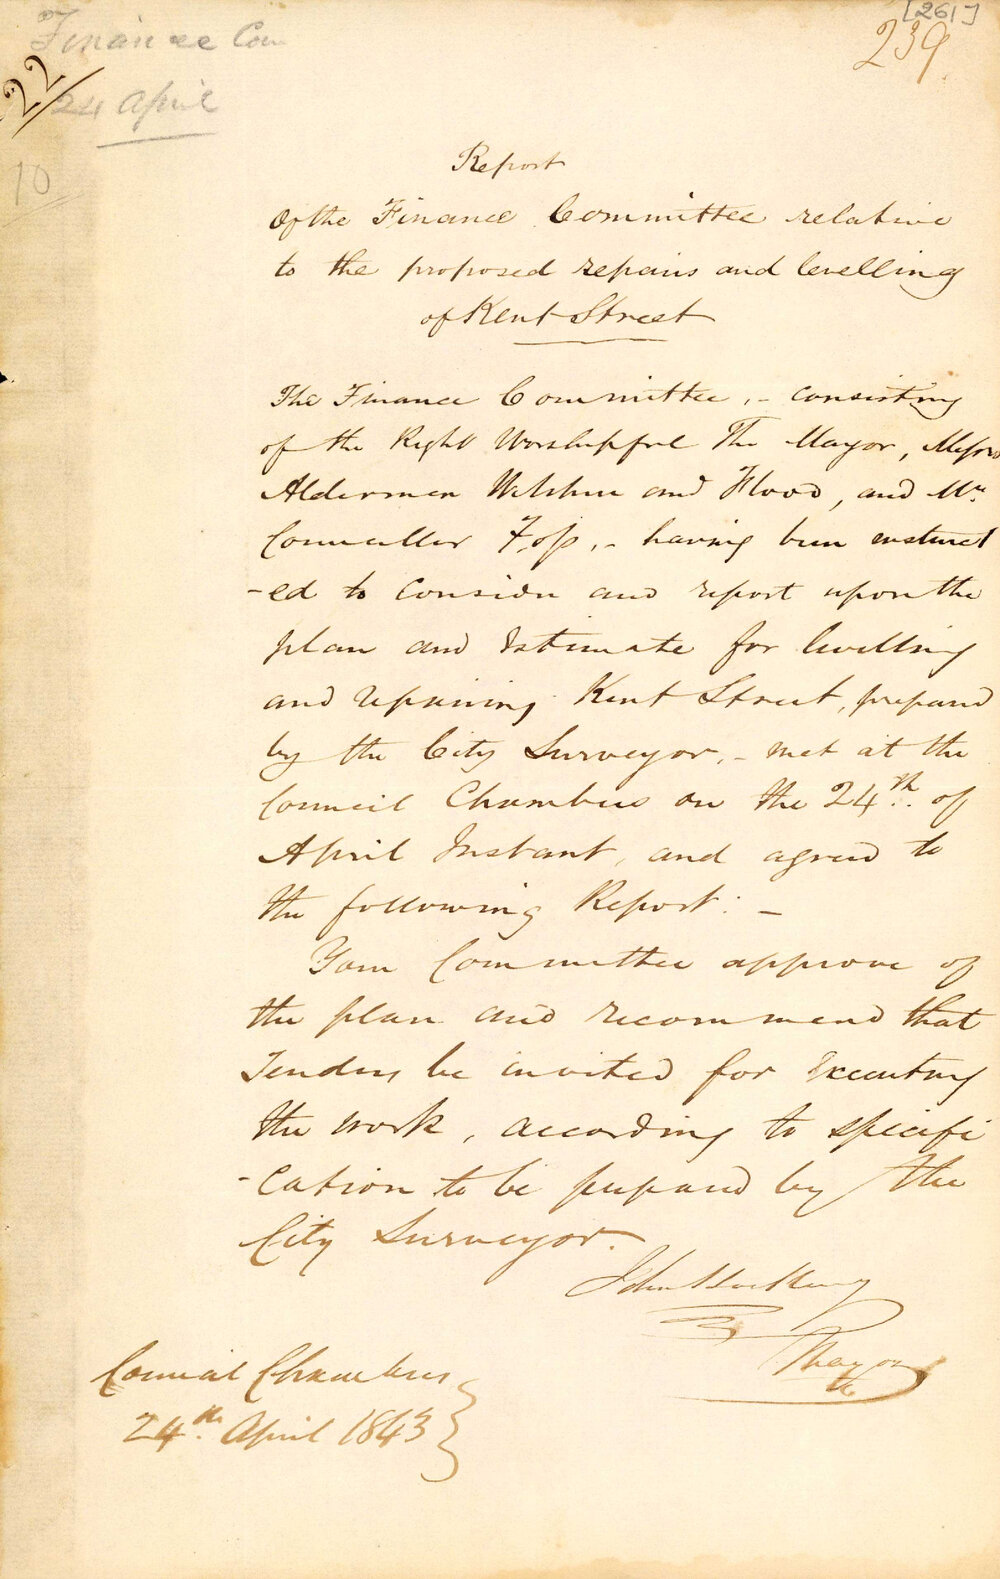 [261]
239.
Finance Com
22/
24 April
10
Report
Of the Finance Committee relative
to the proposed repairs and levelling
of Kent Street
The Finance Committee, - consisting
of the Right Worshipful The Mayor, Messrs
Aldermen Wilshire and Flood, and Mr.
Councillor Foss, - having been instruct
-ed to consider and report upon the
plan and Estimate for levelling
and repairing Kent Street, prepared
by the City Surveyor, - met at the
Council Chambers on the 24th. of
April Instant, and agreed to
the following Report: -
Your Committee approve of
the plan and recommend that
Tenders be invited for Executing
the work, according to specifi
-cation to be prepared by the
City Surveyor.
John Hosking
Mayor
Council Chambers
24th. April 1843